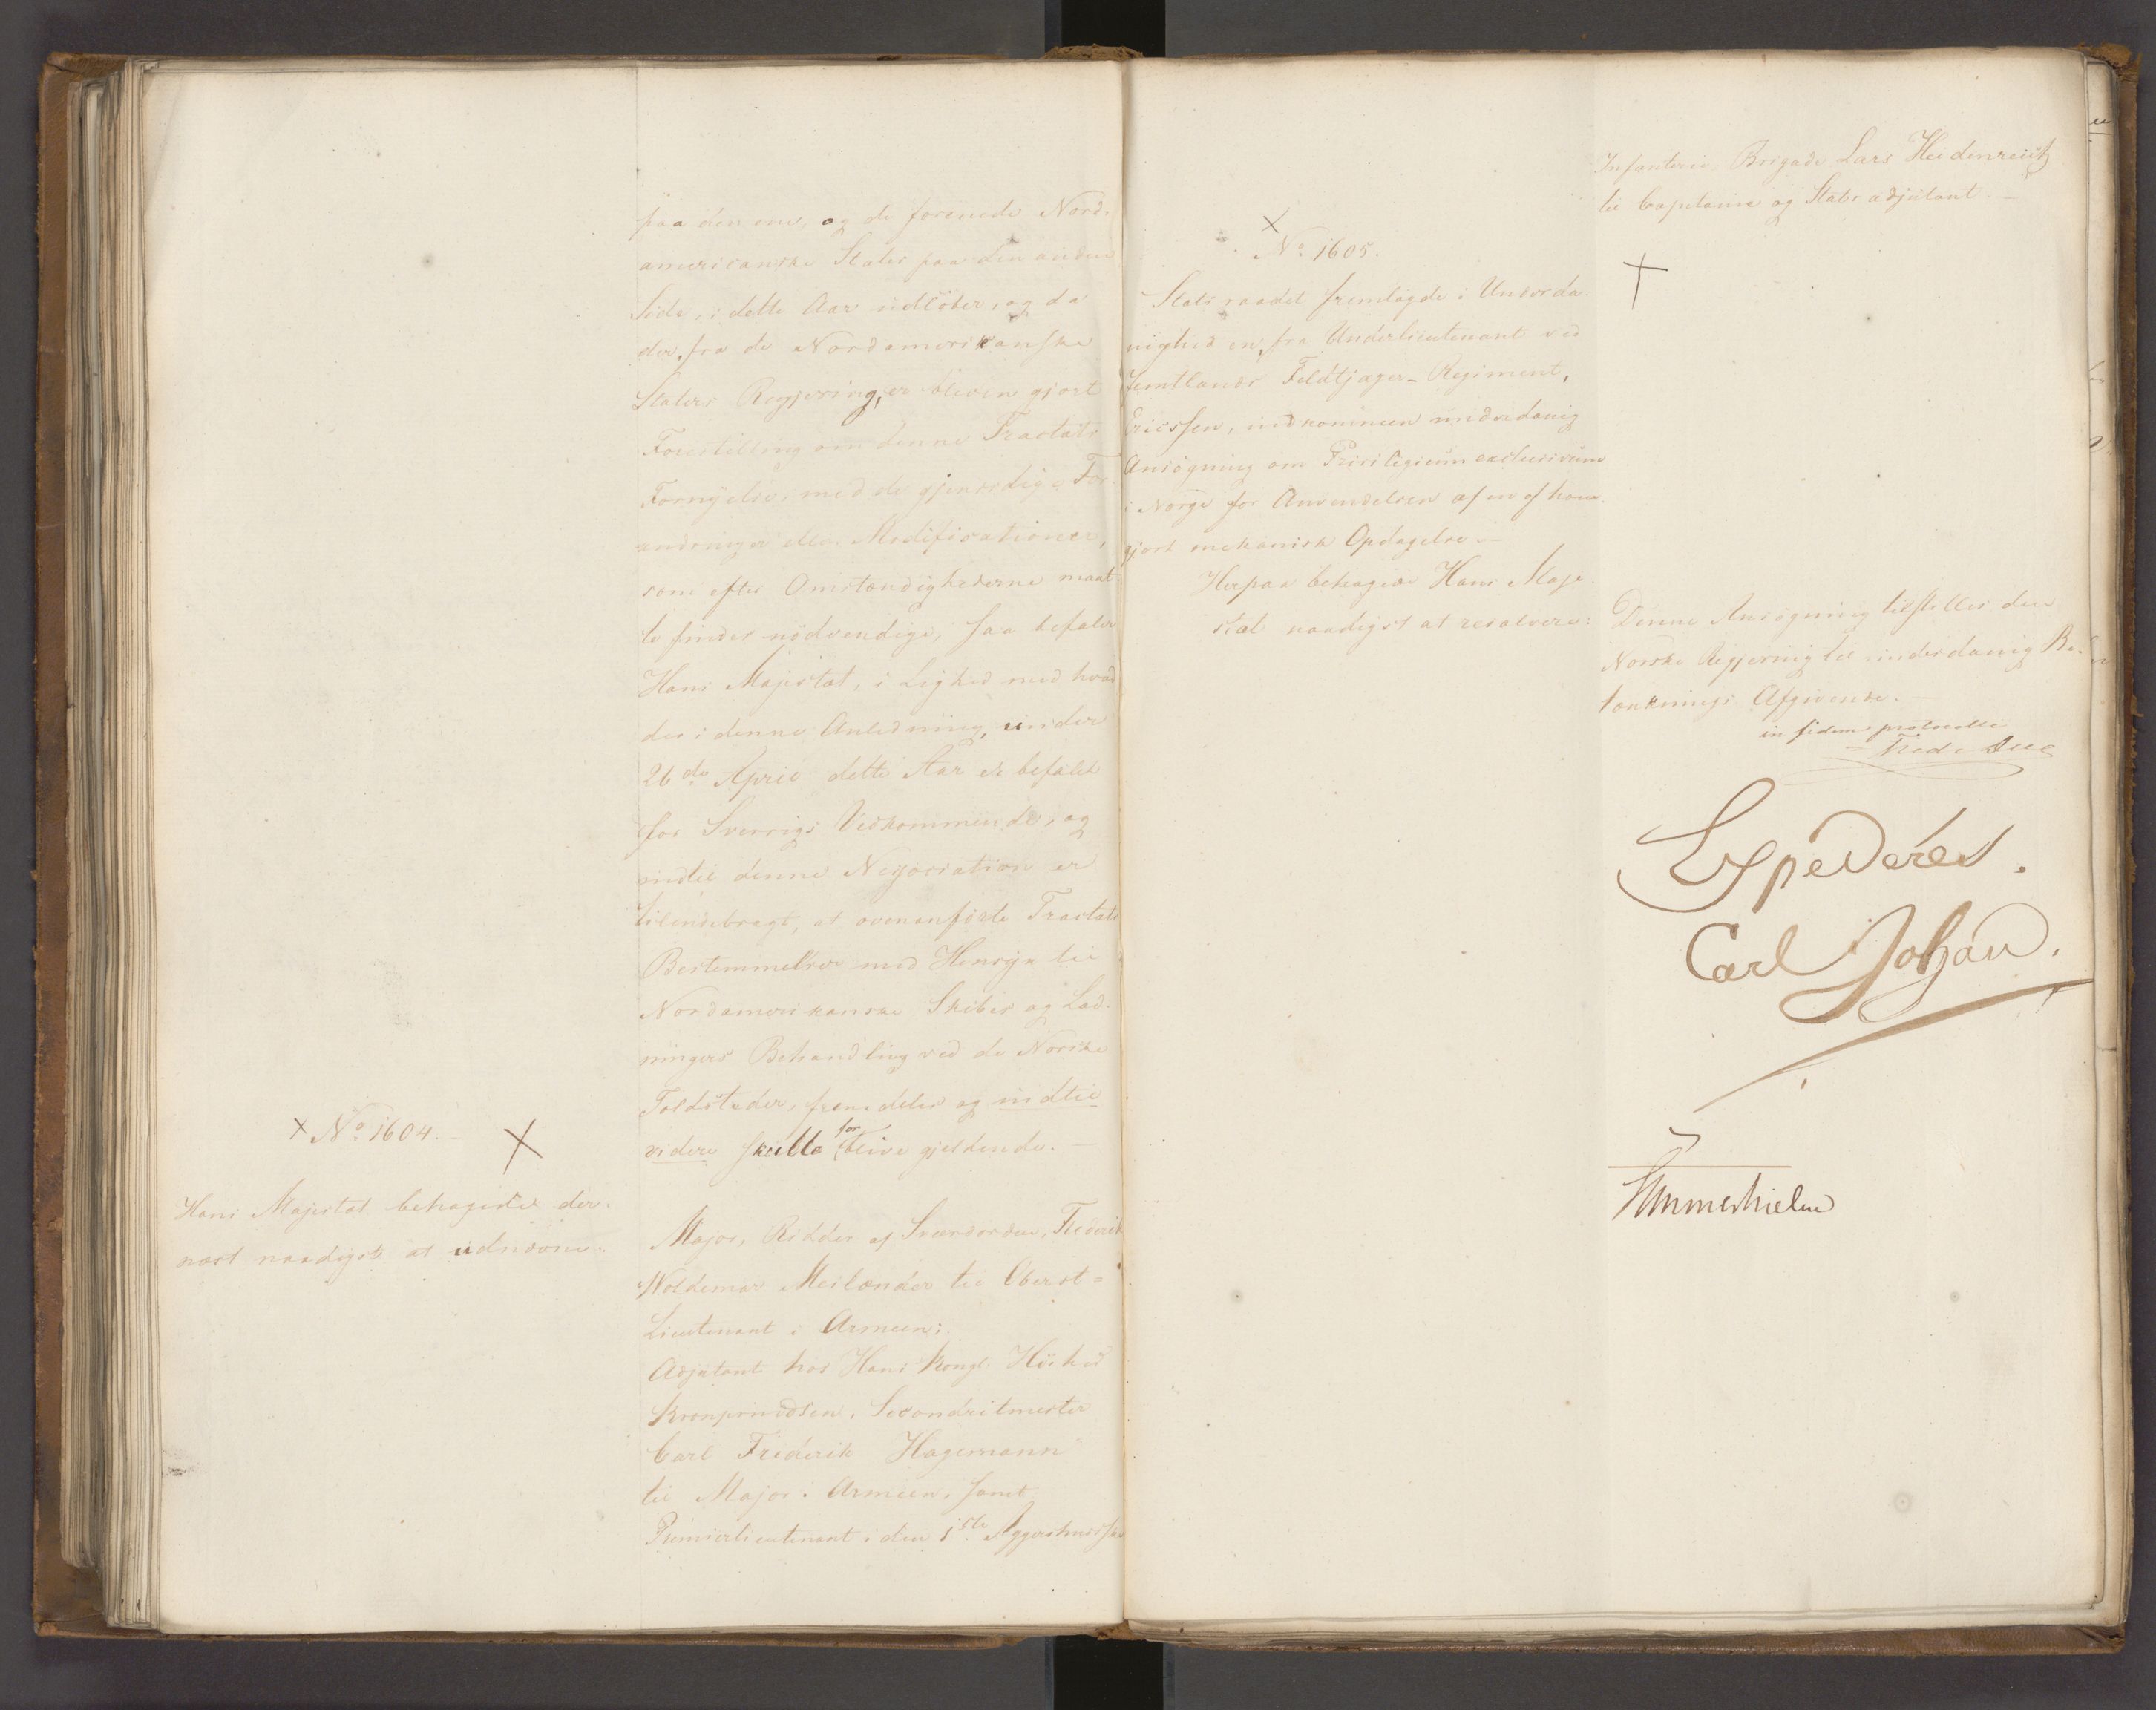 paa den ene, og de forenede Nord-
americanske Stater paa den anden
Side, i dette Aar udlöber, og da
der, fra de Nordamerikanske
Staters Regjering, er bleven gjort
Forestilling om denne Tractats
Fornyelse, med de gjensidige For-
andringer eller Modificationer,
som efter Omstændighederne maat-
te findes nödvendige, saa befaler
Hans Majestæt, i Lighed med hvad
der i denne Anledning, under
26de April dette Aar er befalet
for Sverrigs Vedkommende, og
indtil denne Negociation er
tilendebragt, at ovenanförte Tractats
Bestemmelser med Hensyn til
Nordamerikanske Skibes og Lad-
ningers Behandling ved de Norske
Toldsteder, fremdeles og indtil
videre skulle forblive gjeldende. —
× No. 1604. — ×
Hans Majestæt behagede der-
næst naadigst at udnævne:
Major, Ridder af Sværdorden, Frederik
Woldemar Meilænder til Oberst=
Lieutenant i Armeen;
Adjutant hos Hans Kongl. Höihed
Kronprindsen, Secondritmester
Carl Frederik Hagemann
til Major i Armeen, samt
Premierlieutenant i den 1ste Aggershusiske
Infanterie Brigade Lars Heidenreich
til Captaine og Stabsadjutant —
×
No. 1605.
Statsraadet fremlagde i Underda-
nighed en, fra Underlieutenant ved
Jemtlands Feldtjæger-Regiment,
Ericssen, indkommen underdanig
Ansögning om Privilegium exclusivum
i Norge for Anvendelsen af en af ham
gjort mekanisk Opdagelse —
Herpaa behagede Hans Maje-
stæt naadigst at resolvere:
Denne Ansögning tilstilles den
Norske Regjering til underdanig Be-
tænknings Afgivende. —
in fidem protocolli
Fred. Due
Expederes.
Carl Johan.